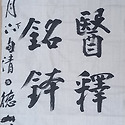 醫釋
銘鉢
月六日清日德